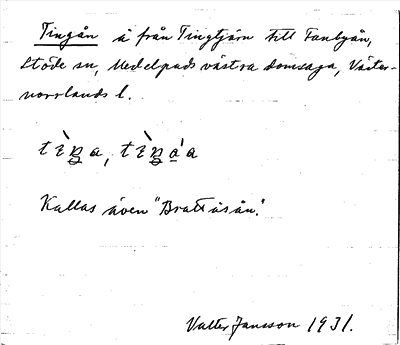 Tingån å från Tingtjärn till Fanbyån,
Stöde sn, Medelpads västra domsaga, Väster-
norrlands l.
Kallas även "Brattåsån".
Valter Jansson 1931.